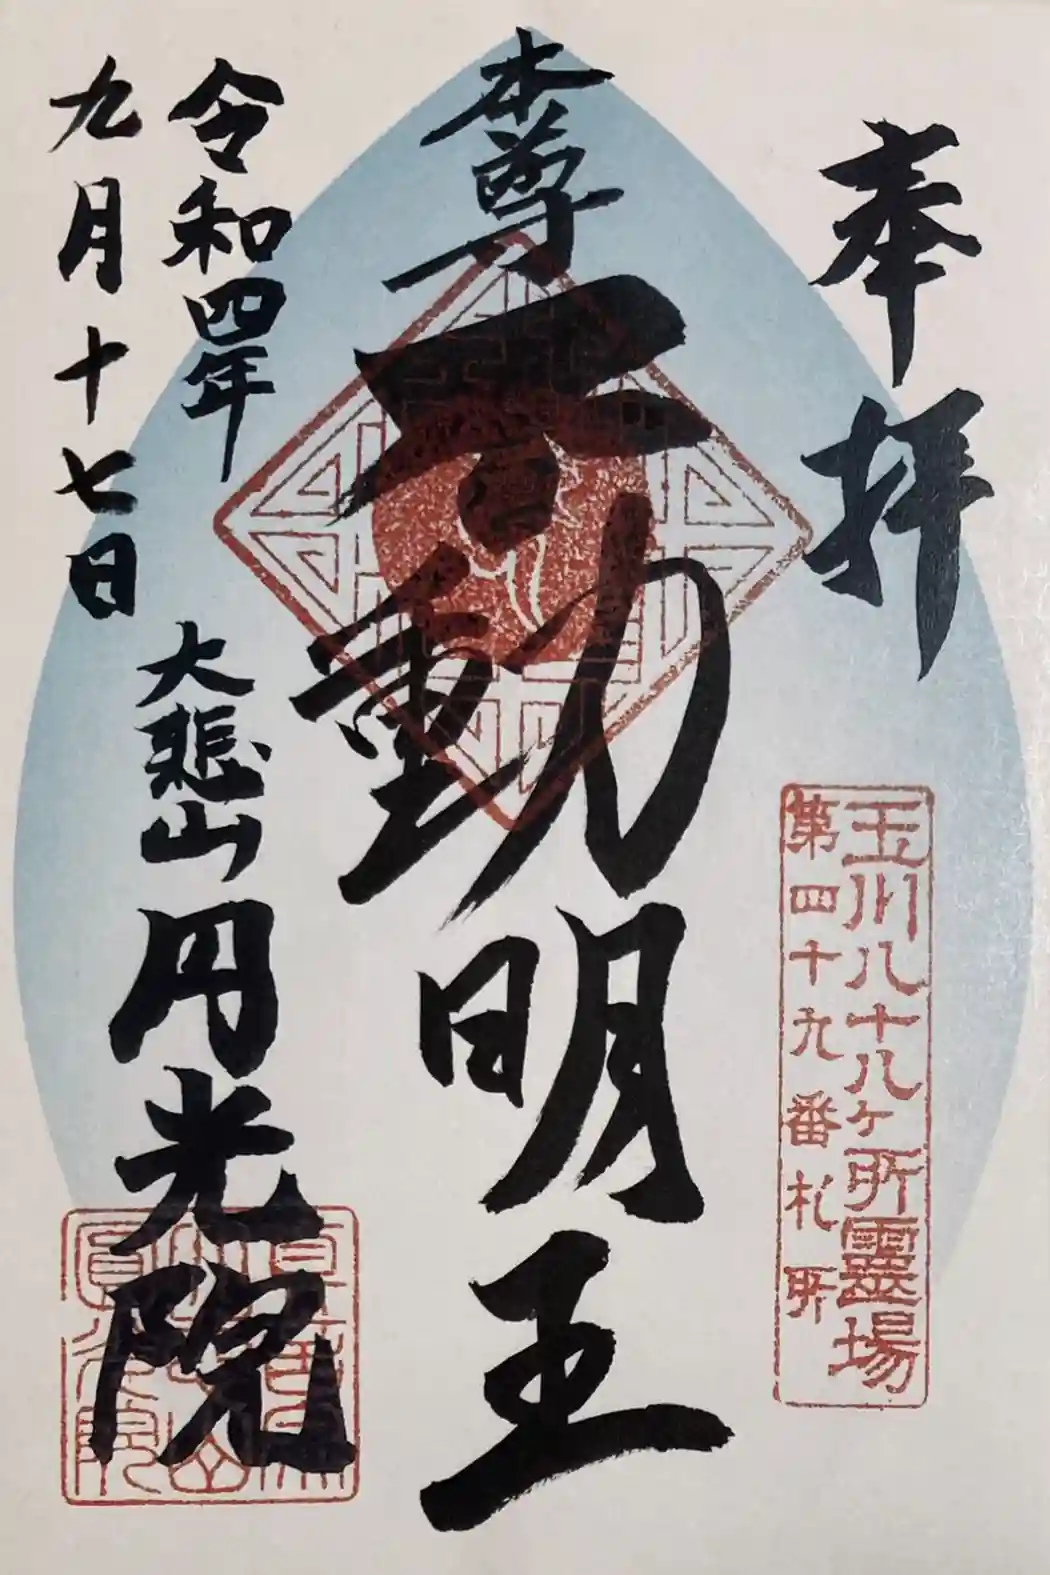 奉拝
玉川八十八ヶ所霊場
第四十九番札所
本尊
不動明王
令和四年
九月十七日
大悲山円光院